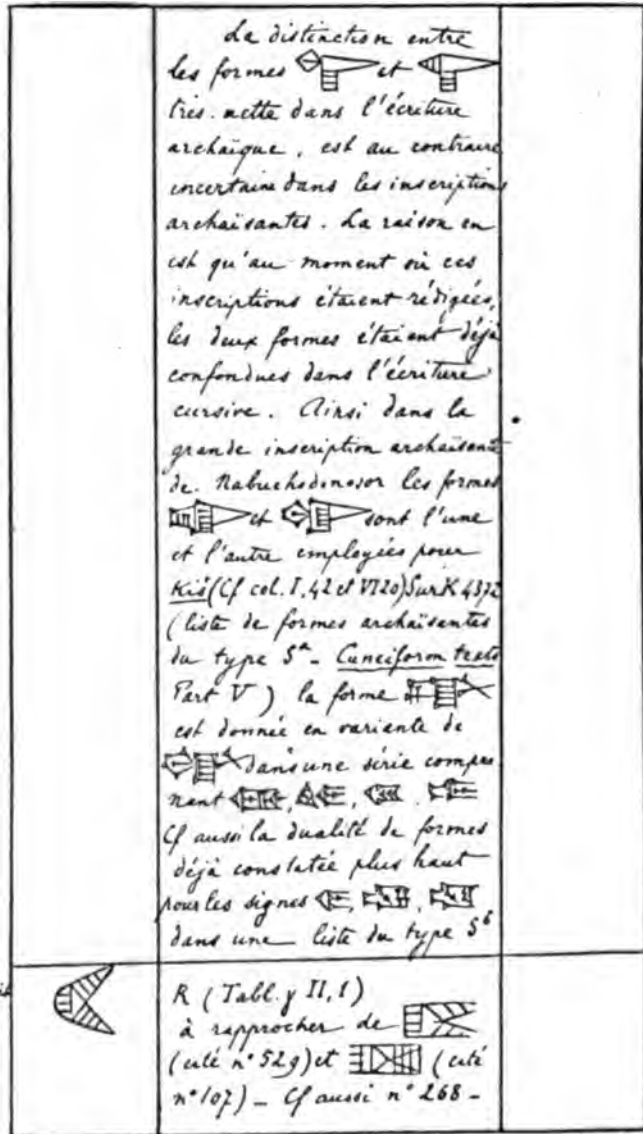 La distinction entre
les formes et
très nette dans l'écriture
archaïque, est au contraire
incertaine dans les inscriptions
archaïsantes. La raison en
est qu'au moment où ces
inscriptions étaient rédigées,
les deux formes étaient déjà
confondues dans l'écriture
cursive. Ainsi dans la
grande inscription archaïsante
de Nabuchodonosor les formes
et sont l'une
et l'autre employées pour
Kiš (Cf col. I, 42 et VI 20) Sur K 4372
(liste de formes archaïsantes
du type Sᵃ - Cuneiform texts
Part V) la forme
est donnée en variante de
dans une série compre
nant , , ,
Cf aussi la dualité de formes
déjà constatée plus haut
pour les signes , ,
dans une liste du type Sᵇ
R (Tabl. y II, 1)
à rapprocher de
(cité n° 529) et (cité
n° 107) - Cf aussi n° 268 -